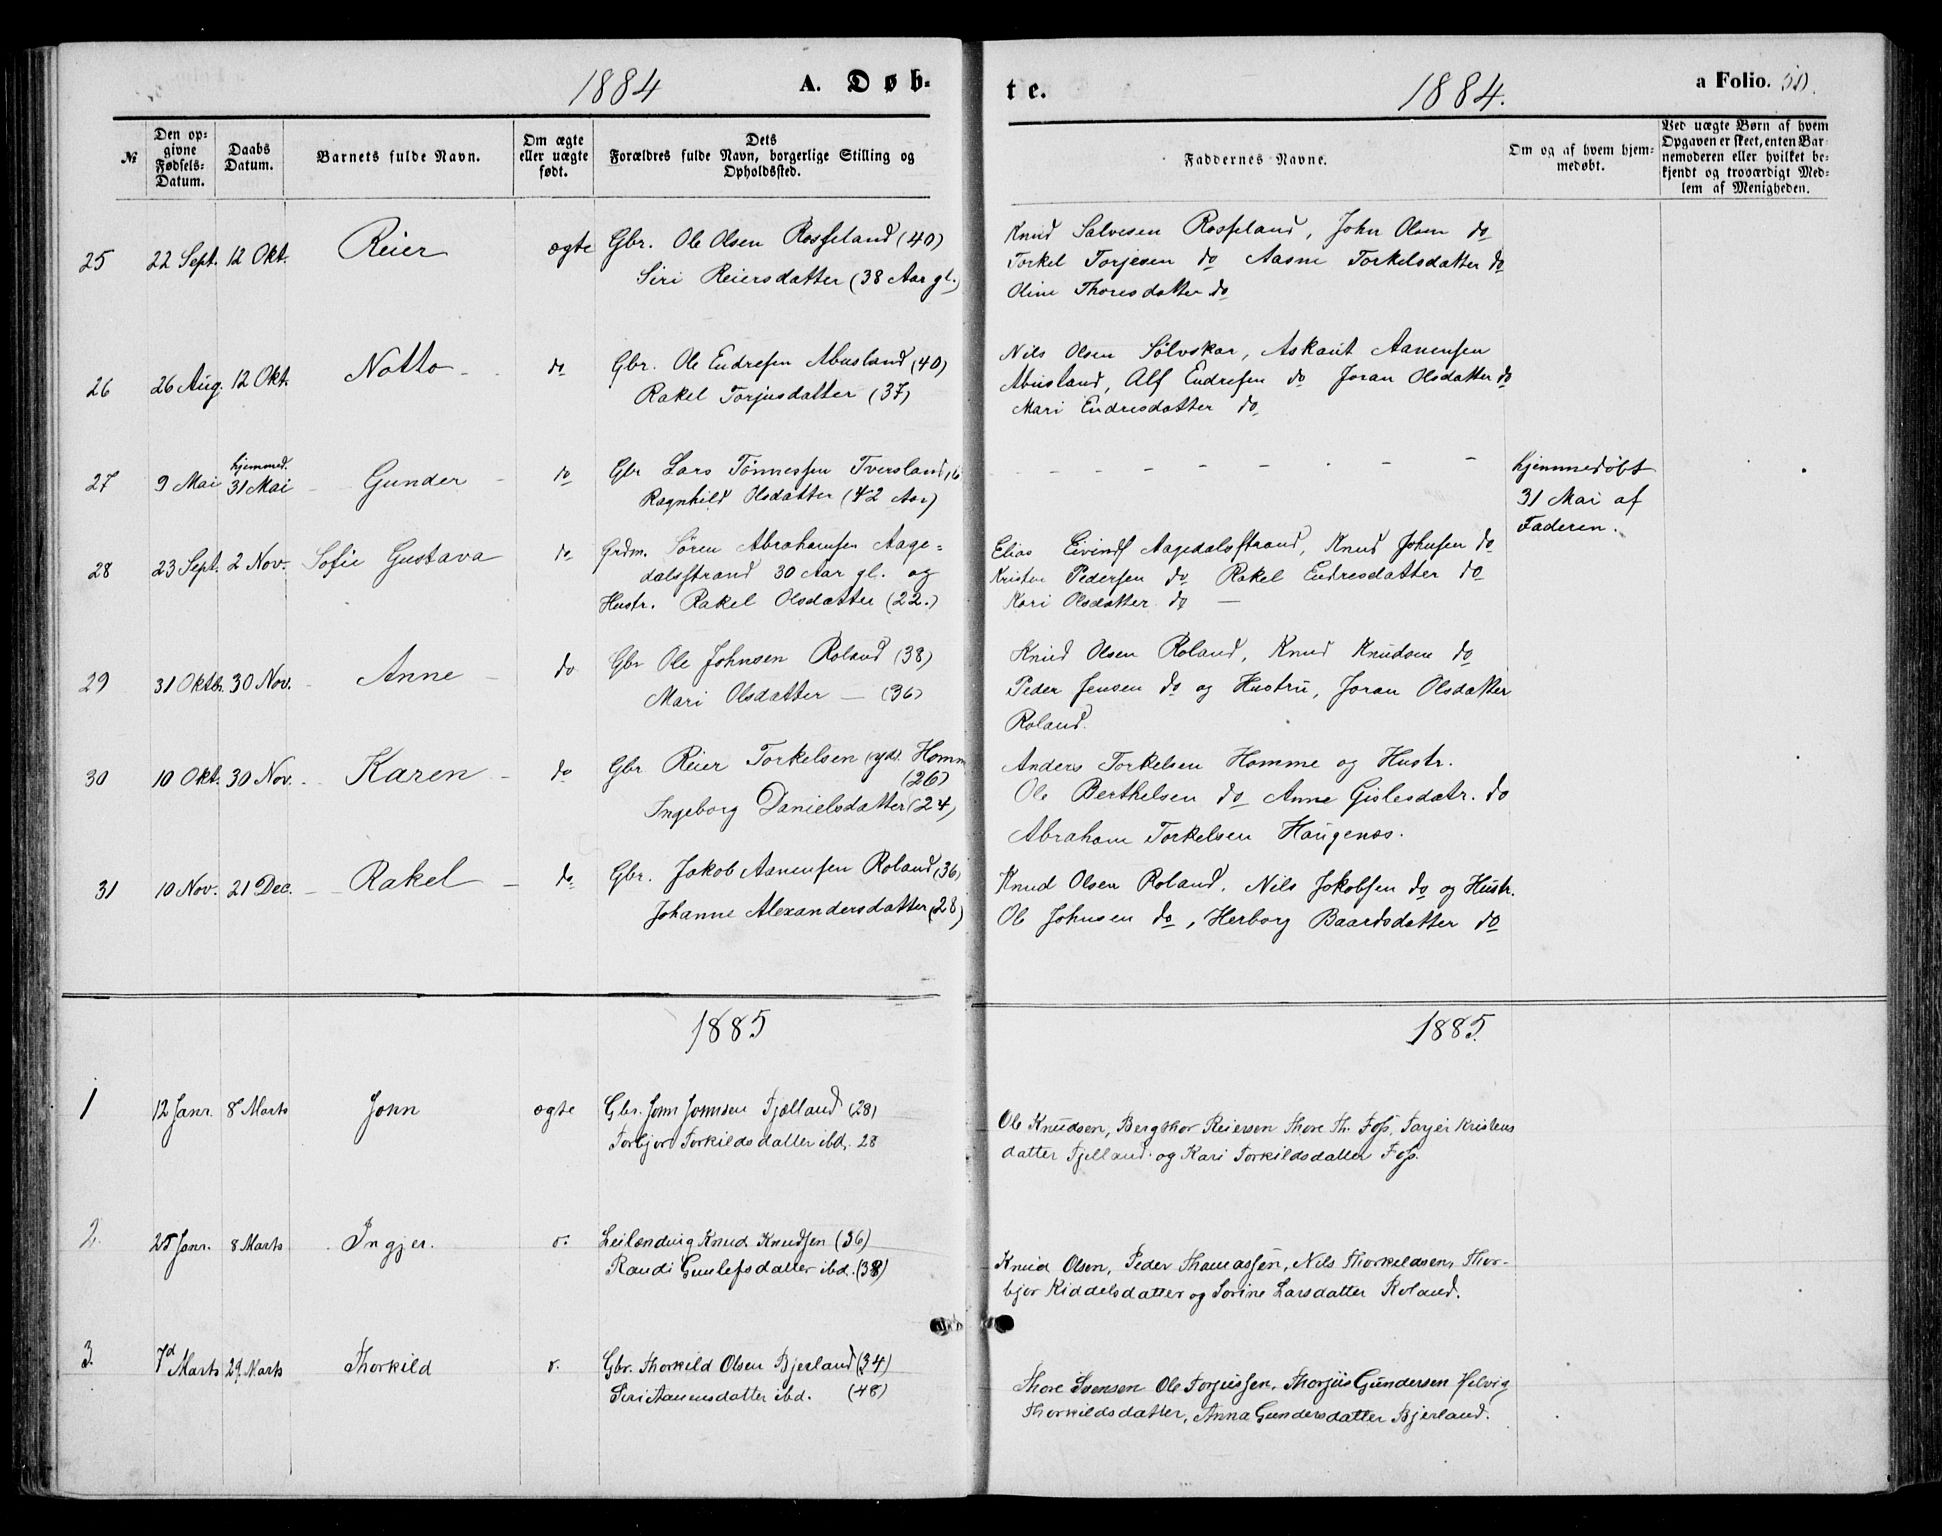 1884 A. Døb-
№
Den op-
givne
Fødsels-
Datum.
Daabs
Datum.
Barnets fulde Navn.
Om ægte
eller uægte
født.
Dets
Forældres fulde Navn, borgerlige Stilling og
Opholdssted.
25 22 Sept. 12 Okt. Reier ægte Gbr. Ole Olsen Rosseland (40)
Siri Reiersdatter (38 Aar gl.)
26 26 Aug. 12 Okt. Notto do Gbr. Ole Endresen Abusland (40)
Rakel Torjusdatter (37)
27 9 Mai hjemmed. 31 Mai Gunder do Gbr Lars Tønnessen Tversland
Ragnhild Olsdatter (42 Aar)
28 23 Sept. 2 Nov. Sofie Gustava do Grdm. Søren Abrahamsen Aage=
dalsstrand 30 Aar gl. og
Hustr. Rakel Olsdatter (22.)
29 31 Oktbr. 30 Nov. Anne do Gbr Ole Johnsen Roland (38)
Mari Olsdatter — (36)
30 10 Okt. 30 Nov. Karen do Gbr Reier Torkelsen Homm
(26)
Ingeborg Danielsdatter (24)
31 10 Nov. 21 Dec. Rakel do Gbr. Jakob Aanensen Roland (36)
Johanne Alexandersdatter (28)
1885
1 12 Janr. 8 Marts John ægte Gbr. John Johnsen Fjælland (28)
Torbjor Torkildsdatter ibd. 28
2. 25 Janr. 8 Marts Ingjer. Leilænding Knud Knudsen (36)
Randi Gunlefsdatter ibd. (38)
3. 7d Marts 29. Marts Thorkild Gbr. Thorkild Olsen Bjerland (34)
Siri Aanensdatter ibd. (48)
te. 1884. a Folio. 50.
Faddernes Navne.
Om og af hvem hjem-
medøbt.
Ved uægte Børn af hvem
Opgaven er skeet, enten Bar-
nemoderen eller hvilket be-
kjendt og troværdigt Med-
lem af Menigheden.
Knud Salvesen Rosseland, John Olsen do
Torkel Torjesen do Aasne Torkelsdatter do
Oline Thoresdatter do
Nils Olsen Sølvskar, Askaut Aanensen
Abusland, Alf Endresen do Joran Olsdatter do
Mari Endresdatter do
hjemmedøbt
31 Mai af
Faderen.
Elias Eivinds Aagedalsstrand, Knud Johnsen do
Kristen Pedersen do Rakel Endresdatter do
Kari Olsdatter do —
Knud Olsen Roland, Knud Knudsen do
Peder Jensen do og Hustru, Joran Olsdatter
Roland.
Anders Torkelsen Homme og Hustr.
Ole Berthelsen do Anne Gislesdatr. do
Abraham Torkelsen Haugenæs.
Knud Olsen Roland, Nils Jakobsen do og Hustr.
Ole Johnsen do, Herborg Baardsdatter do
1885.
Ole Knudsen, Bergthor Reiersen Thore Th. Foss, Tarjer Kristens
datter Fjelland og Kari Torkildsdatter Foss.
Knud Olsen, Peder Thomassen, Nils Thorkeldsen, Thor-
bjor Kiddelsdatter og Sorine Larsdatter Roland.
Thore Svensen Ole Torjussen, Thorjus Gundersen Helvig
Thorkildsdatter, Anna Gundersdatter Bjerland.